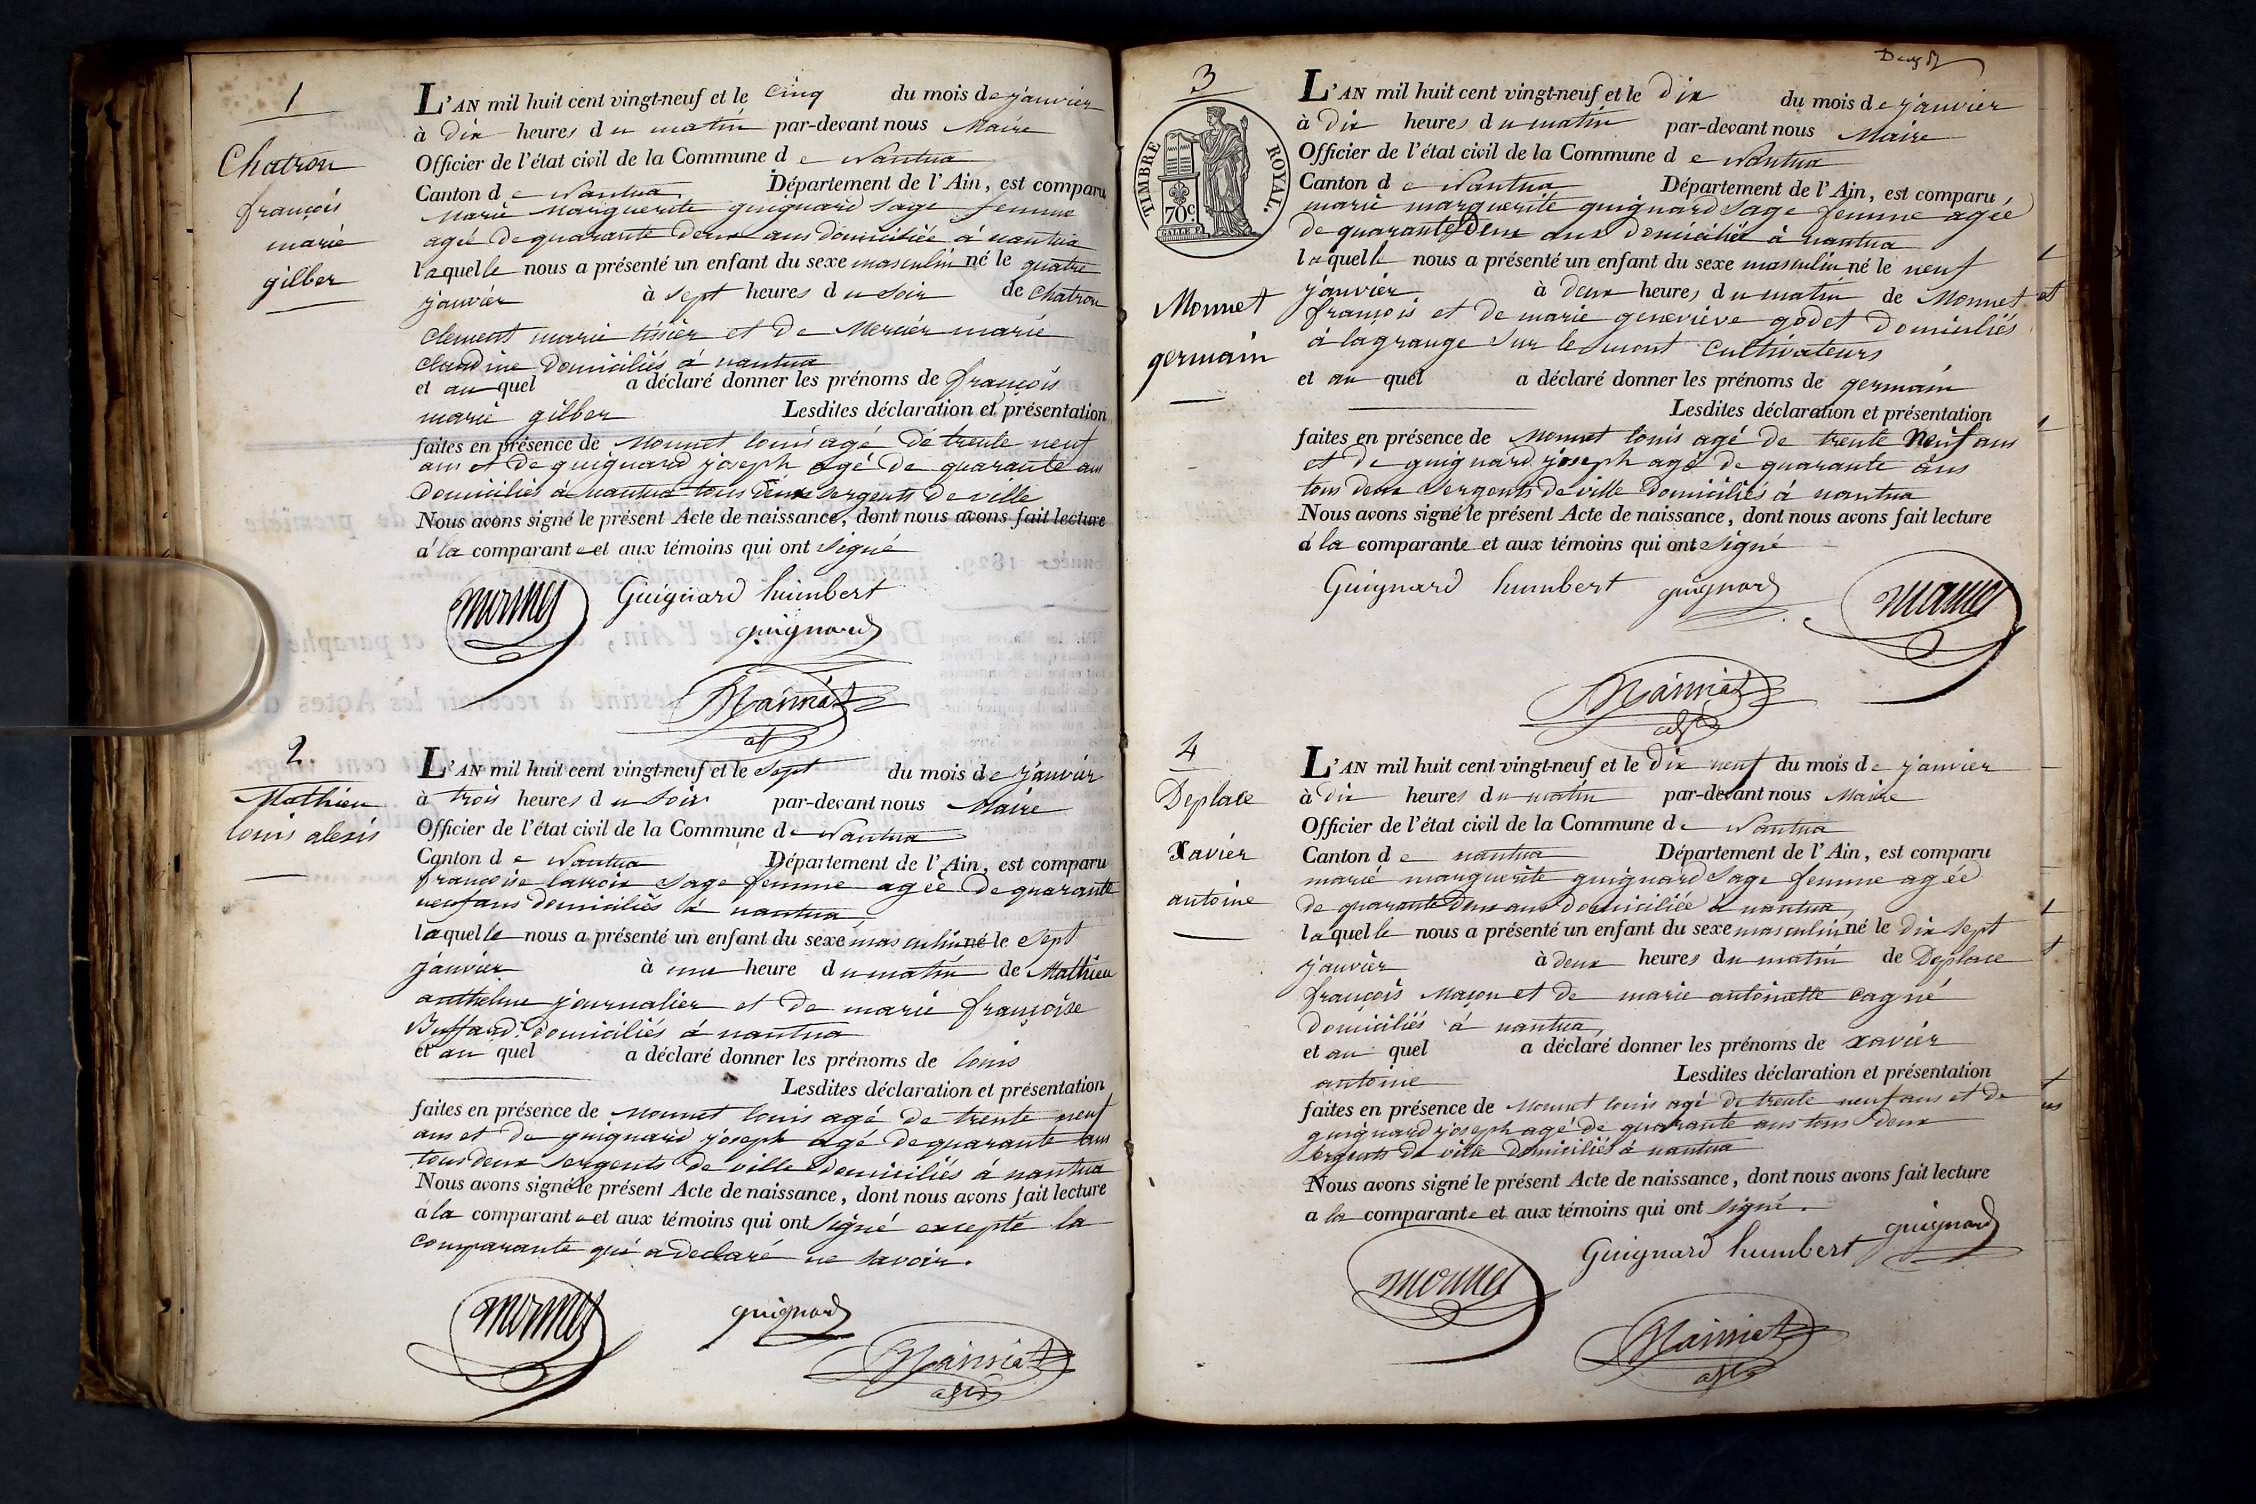 1
Chatron
françois
marie
gilber
L'AN mil huit cent vingt-neuf et le cinq du mois de janvier
à dix heures du matin par-devant nous Maire
Officier de l'état civil de la Commune de Nantua
Canton de Nantua Département de l'Ain, est comparu
Marie Marguerite guignard sage femme
agée de quarante deux ans domiciliée à nantua
laquelle nous a présenté un enfant du sexe masculin né le quatre
janvier à sept heures du soir de Chatron
Clement marie tissier et de Mercier marie
claudine domiciliés à nantua
et au quel a déclaré donner les prénoms de françois
marie gilber Lesdites déclaration et présentation
faites en présence de Monnet louis agé de trente neuf
ans et de guignard joseph agé de quarante ans
domiciliés à nantua tous deux sergents de ville
Nous avons signé le présent Acte de naissance, dont nous avons fait lecture
à la comparante et aux témoins qui ont signé
monnet Guignard humbert
guignard
2
Mathieu
louis alexis
L'AN mil huit cent vingt-neuf et le sept du mois de janvier
à trois heures du soir par-devant nous Maire
Officier de l'état civil de la Commune de Nantua
Canton de Nantua Département de l'Ain, est comparu
françoise lacroix sage femme agée de quarante
neuf ans domiciliés à nantua
laquelle nous a présenté un enfant du sexe masculin né le sept
janvier à une heure du matin de Mathieu
anthelme journalier et de marie françoise
Buffard domiciliés à nantua
et au quel a déclaré donner les prénoms de louis
Lesdites déclaration et présentation
faites en présence de Monnet louis agé de trente neuf
ans et de guignard joseph agé de quarante ans
tous deux sergents de ville domiciliés à nantua
Nous avons signé le présent Acte de naissance, dont nous avons fait lecture
à la comparante et aux témoins qui ont signé excepté la
comparante qui a declaré ne savoir.
monnet guignard
3
TIMBRE ROYAL.
70c.
Monnet
germain
L'AN mil huit cent vingt-neuf et le dix du mois de janvier
à dix heures du matin par-devant nous Maire
Officier de l'état civil de la Commune de Nantua
Canton de Nantua Département de l'Ain, est comparu
marie marguerite guignard sage femme agée
de quarante deux ans domiciliée à nantua
laquelle nous a présenté un enfant du sexe masculin né le neuf
janvier à deux heures du matin de Monnet
françois et de marie geneviève godet domiciliés
à lagrange sur le mont cultivateurs
et au quel a déclaré donner les prénoms de germain
Lesdites déclaration et présentation
faites en présence de Monnet louis agé de trente Neuf ans
et de guignard joseph agé de quarante ans
tous deux sergents de ville domiciliés à nantua
Nous avons signé le présent Acte de naissance, dont nous avons fait lecture
à la comparante et aux témoins qui ont signé
Guignard humbert guignard monnet
4
Deplace
Xavier
antoine
L'AN mil huit cent vingt-neuf et le dix neuf du mois de janvier
à dix heures du matin par-devant nous Maire
Officier de l'état civil de la Commune de Nantua
Canton de nantua Département de l'Ain, est comparu
marie marguerite guignard sage femme agée
de quarante deux ans domiciliée à nantua
laquelle nous a présenté un enfant du sexe masculin né le dix sept
janvier à deux heures du matin de Deplace
françois Maçon et de marie antoinette cagné
domiciliés à nantua
et au quel a déclaré donner les prénoms de xavier
antoine Lesdites déclaration et présentation
faites en présence de Monnet louis agé de trente neuf ans et de
guignard joseph agé de quarante ans tous deux
sergents de ville domiciliés à nantua
Nous avons signé le présent Acte de naissance, dont nous avons fait lecture
a la comparante et aux témoins qui ont signé.
monnet Guignard humbert guignard